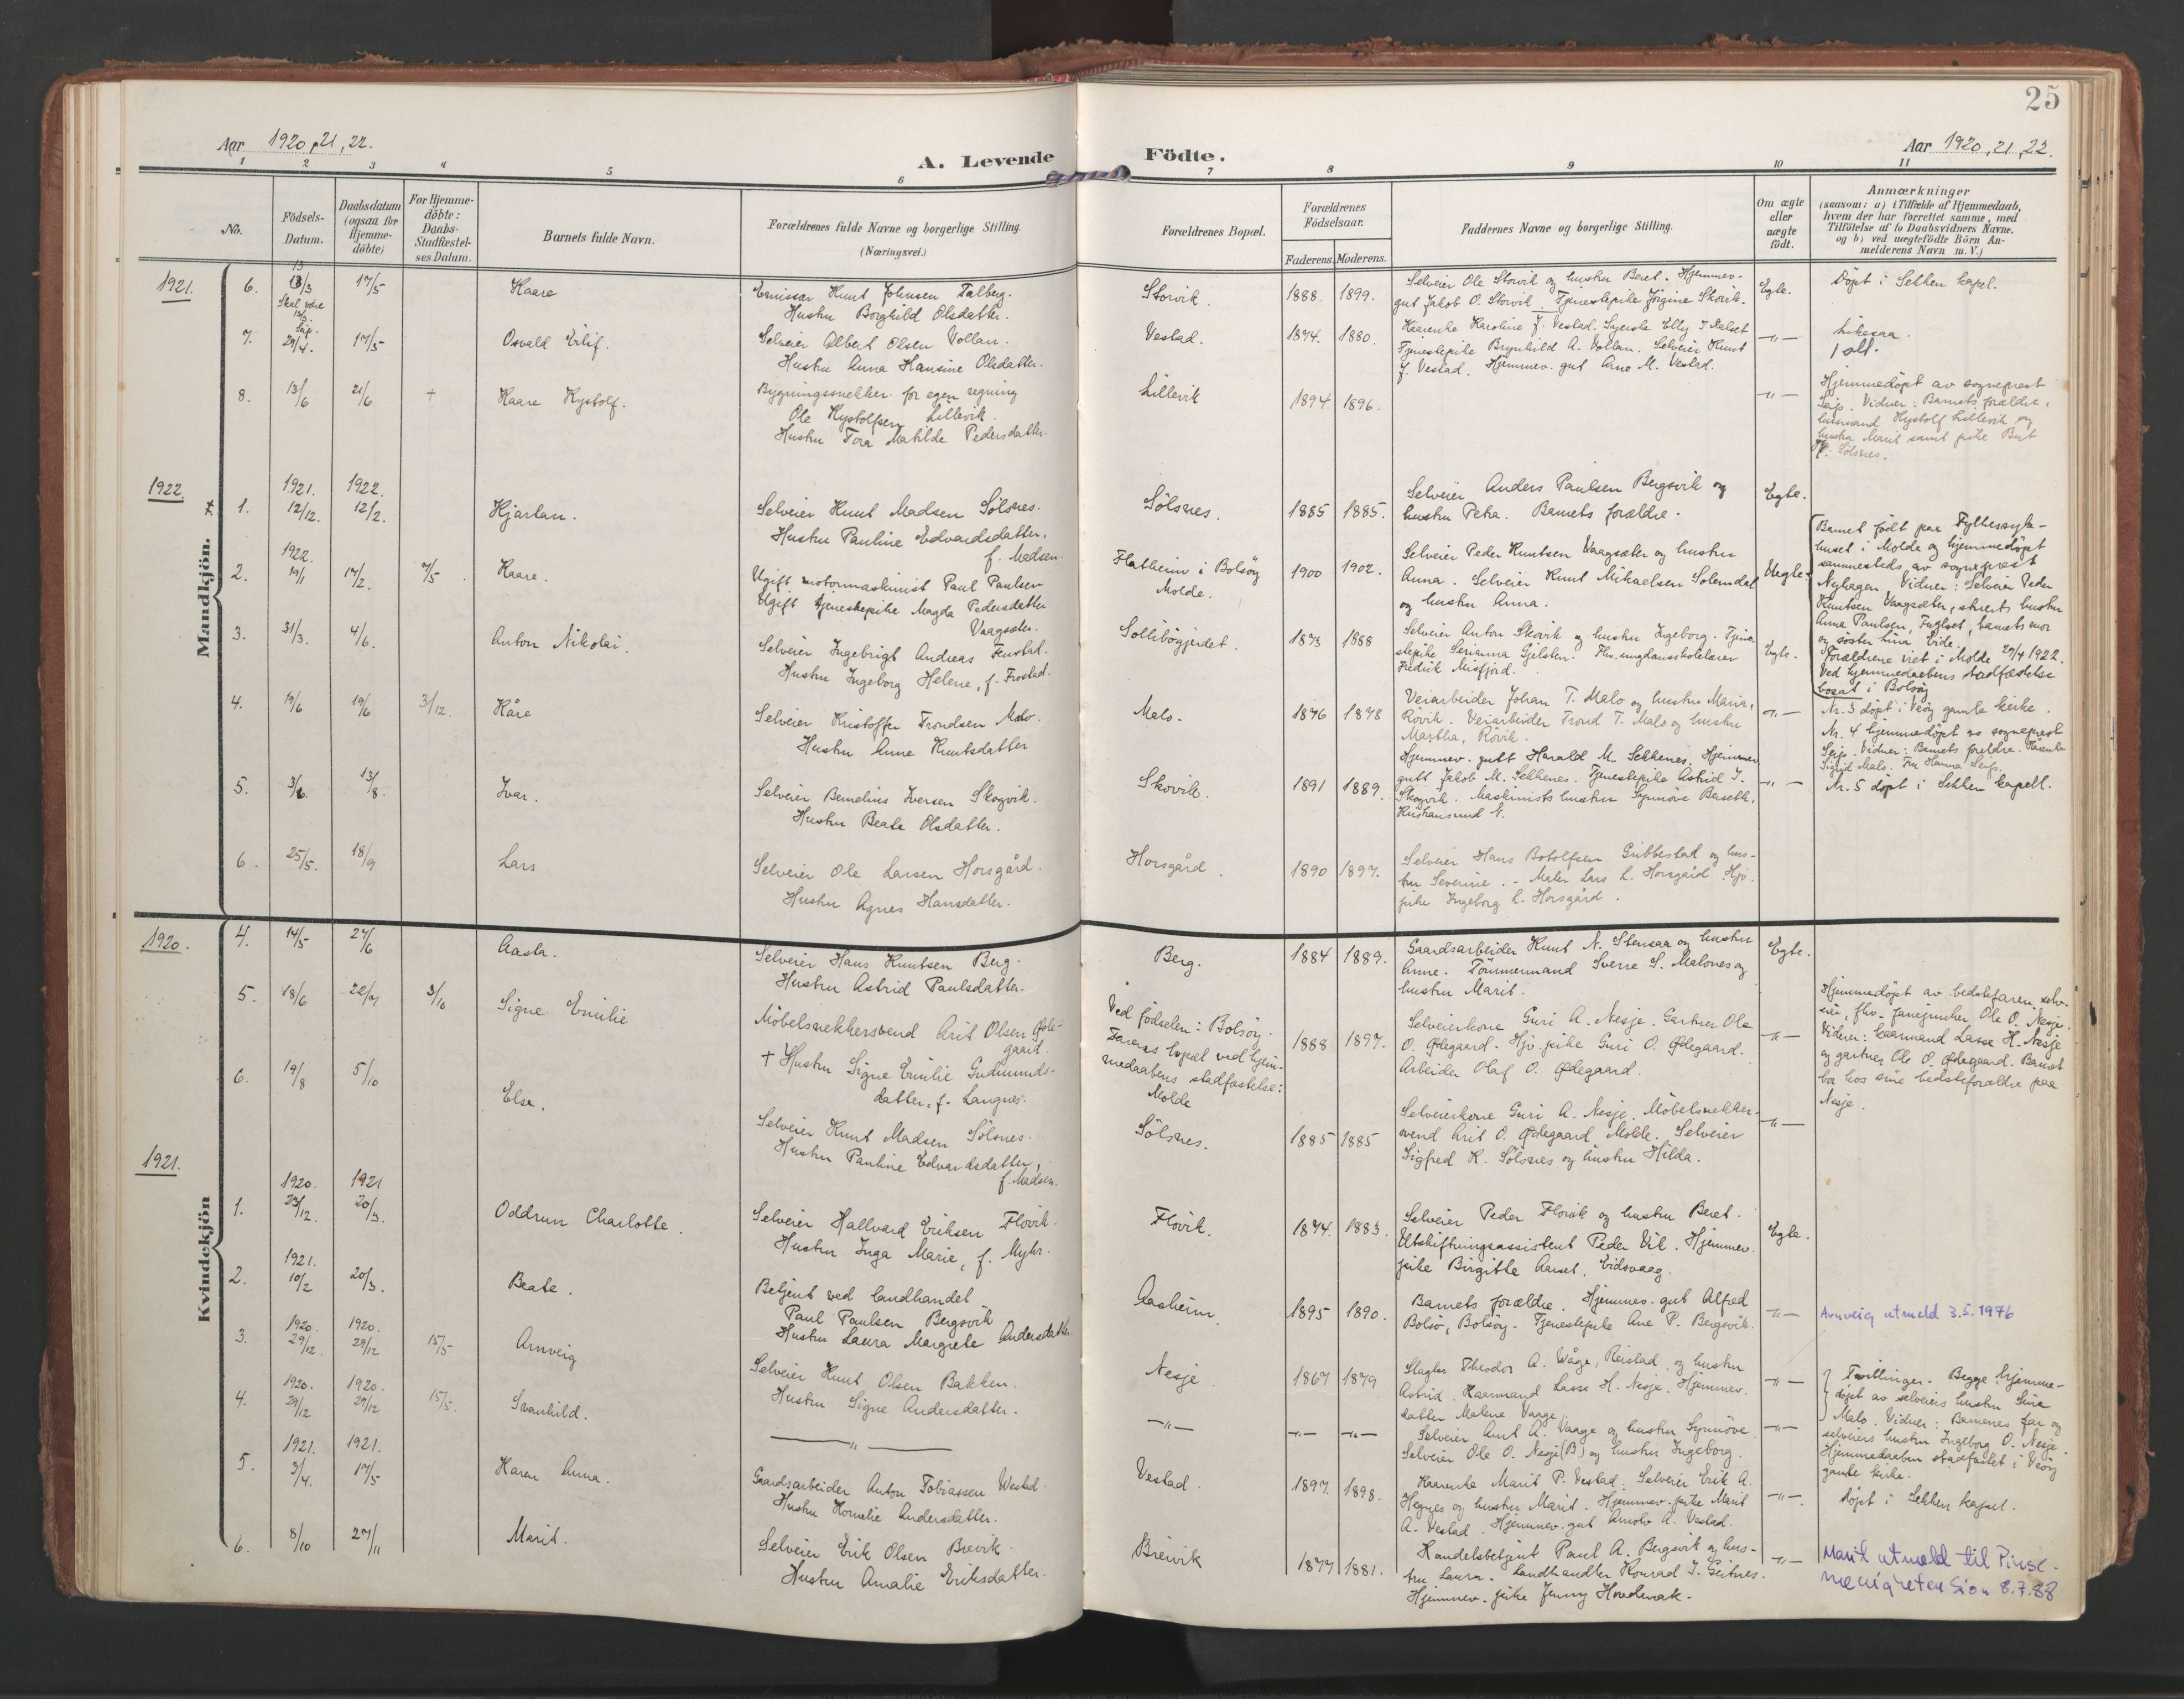 25
Aar 1920, 21, 22.
A. Levende Födte.
Aar 1920, 21, 22.
1 2 3 4 5 6 7 8 9 10 11
No.
Födsels-
Datum.
Daabsdatum
(ogsaa for
Hjemme-
döbte)
For Hjemme-
döbte:
Daabs-
Stadfæstel-
ses Datum.
Barnets fulde Navn.
Forældrenes fulde Navne og borgerlige Stilling.
(Næringsvei.)
Forældrenes Bopæl.
Forældrenes
Födselsaar.
Faderens. Moderens.
Faddernes Navne og borgerlige Stilling.
Om ægte
eller
uægte
födt.
Anmærkninger
(saasom: a) i Tilfælde af Hjemmedaab,
hvem der har forrettet samme, med
Tilföielse af to Daabsvidners Navne,
og b) ved uægtefödte Börn An-
melderens Navn m. V.)
Mandkjön.
1921.
6. 13/3 17/5 Kaare
Skal være
13/3
Seip.
Emissær Knut Johnsen Talberg.
Hustru Borghild Olsdatter.
Storvik. 1888 1899.
Selveier Ole Storvik og hustru Beret. Hjemmev.
gut Jakob O. Storvik. Tjenestepike Jörgine Skorik.
Egte.
Döpt i Sekken kapel.
7. 29/4. 17/5 Osvald Eilif.
Selveier Albert Olsen Vollan.
Hustru Anna Hansine Olsdatter.
Vestad. 1874. 1880.
Kaarenke Karoline J. Vestad. Syerske Elly T. Malset
Tjenestepike Brynhild A. Vollan. Selveier Knut
J. Vestad. Hjemmev. gut Arne M. Vestad.
-"-
Likesaa.
8. 13/6 21/6 + Kaare Kystolf.
Bygningssnekker for egen regning
Ole Kystolfsen Lillevik.
Hustru Tora Matilde Pedersdatter.
Lillevik 1894. 1896.
-"-
Hjemmedöpt av sogneprest
Seip. Vidner: Barnets forældre,
husmand Kystolf Lillevik og
hustru Marit samt pike Brit
P. Sölsnes.
1922.
1921. 1922.
1. 12/12. 12/2. Kjartan.
Selveier Knut Madsen Sölsnes.
Hustru Pauline Edvardsdatter,
f. Madsen.
Sölsnes. 1885 1885.
Selveier Anders Paulsen Bergsvik og
hustru Petra. Barnets forældre.
Egte.
1922.
2. 19/1 17/2. 7/5. Kaare.
Ugift motormaskinist Paul Paulsen
Ugift tjenestepike Magda Pedersdatter
Vaagsæter.
Flatheim i Bolsöy
Molde.
1900 1902.
Selveier Peder Knutsen Vaagsæter og hustru
Anna. Selveier Knut Mikaelsen Solemdal
og hustru Anna.
Uegte.
Barnet födt paa Fylkessyke-
huset i Molde og hjemmedöpt
sammesteds av sogneprest
Nyhagen. Vidner: Selveier Peder
Knutsen Vaagsæter, hustru
Anna Paulsen, Fuglset, barnets mor
og söster Lina Eide.
Forældrene viet i Molde 29/4 1922.
Ved hjemmedaabens stadfæstelse
bosat i Bolsöy
3. 31/3. 4/6. Anton Nikolai.
Selveier Ingebrigt Andreas Frostad.
Hustru Ingeborg Helene, f. Frostad.
Sollibögjerdet. 1873 1888
Selveier Anton Skovik og hustru Ingeborg. Tjene-
stepike Serianna Gjelsten. Fhv. ungdomsskolelærer
Fredrik Misfjord.
Egte.
Nr. 3 döpt i Veöy gamle kirke.
4. 19/6 19/6 3/12. Kåre
Selveier Kristoffer Trondsen Malo.
Hustru Anne Knutsdatter
Malo. 1876 1878
Veiarbeider Johan T. Malo og hustru Maria,
Rövik. Veiarbeider Trond T. Malo og hustru
Martha, Rövik.
-"-
Nr. 4 hjemmedöpt av sogneprest
Seip. Vidner: Barnets foreldre. Kårenke
Sigrid Malo. Fru Hanna Seip.
5. 3/6. 13/8. Ivar.
Selveier Bernelius Iversen Skogvik.
Hustru Beate Olsdatter.
Skovik. 1891 1889.
Hjemmev. gutt Harald M. Sekkenes. Hjemmev.
gutt Jakob M. Sekkenes. Tjenestepike Astrid I.
Skogvik. Maskinists hustru Synnöve Berseth,
Kristiansund N.
-"-
Nr. 5 döpt i Sekken kapell.
6. 25/5. 18/9 Lars
Selveier Ole Larsen Horsgård.
Hustru Agnes Hansdatter.
Horsgård. 1890 1897.
Selveier Hans Botolfsen Gribbestad og hus-
tru Severine. - Maler Lars L. Horsgård. Hjv.
pike Ingeborg L. Horsgård.
Kvindekjön
1920.
4. 14/5 27/6 Aasta.
Selveier Hans Knutsen Berg.
Hustru Astrid Paulsdatter.
Berg. 1884 1889.
Gaardsarbeider Knut N. Stensaa og hustru
Anne. Tömmermand Sverre S. Malones og
hustru Marit.
Egte.
5. 18/6 3/10 Signe Emilie
Möbelsnekkersvend Arit Olsen Öde-
gaard.
+ Hustru Signe Emilie Gudmunds-
datter, f. Langnes.
Ved födselen: Bolsöy.
Farens bopæl ved hjem-
medaabens stadfæstelse:
Molde
1888 1897.
Selveierkone Guri A. Nesje. Gartner Ole
O. Ödegaard. Hjv. pike Guri O. Ödegaard.
Arbeider Olaf O. Ödegaard.
-"-
Hjemmedöpt av bedstefaren, selv-
eier, fhv. Ole O. Nesje.
Vidner: kaarmand Lasse H. Nesje
og gartner Ole O. Ödegaard. Barnet
bor hos sine bedsteforældre paa
Nesje.
6. 19/8 5/10 Else.
Selveier Knut Madsen Sölsnes.
Hustru Pauline Edvardsdatter,
f. Madsen.
Sölsnes. 1885 1885
Selveierkone Guri A. Nesje. Möbelsnekker-
svend Arit O. Ödegaard, Molde. Selveier
Sigfred K. Sölsnes og hustru Hilda.
-"-
1921.
1920. 1921
1. 23/12. 20/3. Oddrun Charlotte.
Selveier Hallvard Eriksen Flovik.
Hustru Inga Marie, f. Myhr.
Flovik. 1874. 1883.
Selveier Peder Flovik og hustru Beret.
Utskiftningsassistent Peder Vik. Hjemmev.
pike Birgitte Aarset, Eidsvaag.
Egte.
1921.
2. 10/2 20/3. Beate.
Betjent ved landhandel
Paul Paulsen Bergsvik
Hustru Laura Margrete Andersdatter.
Aasheim 1895 1890.
Barnets forældre. Hjemmev. gut Alfred
Bolsö, Bolsöy. Tjenestepike Ane P. Bergsvik.
-"-
Arnveig utmeld 3.5.1976
1920. 1920.
3. 29/12. 29/12 15/5 Arnveig
Selveier Knut Olsen Bakken.
Hustru Signe Andersdatter.
Nesje 1867 1879
Slagter Theodor A. Wåge, Reistad, og hustru
Astrid. Kaarmand Lasse H. Nesje. Hjemmev.
datter Malene Vaage.
-"-
Tvillinger. Begge hjemme-
döpt av selveiers hustru Sina
Malo. Vidner: Barnenes far og
selveiers hustru Ingeborg O. Nesje.
Hjemmedaaben stadfæstet i Veöy
gamle kirke.
1920. 1920.
4. 29/12 29/12 15/5. Svanhild.
-"-
-"- -"- -"-
Selveier Amt A. Vaage og hustru Synnöve.
Selveier Ole O. Nesje (B) og hustru Ingeborg.
-"-
1921. 1921.
5. 3/4. 17/5 Karen Anna.
Gaardsarbeider Anton Tobiassen Vestad.
Hustru Kornelie Andersdatter.
Vestad. 1897. 1898.
Kaarenke Marit P. Vestad. Selveier Erik A.
Hegnes og hustru Marit. Hjemmev. pike Marit
A. Vestad. Hjemmev. gut Arnolv A. Vestad.
-"-
Döpt i Sekken kapel.
6. 8/10 27/11 Marit.
Selveier Erik Olsen Breivik.
Hustru Amalie Eriksdatter.
Breivik 1877 1881.
Handelsbetjent Paul A. Bergsvik og hus-
tru Laura. Landhandler Konrad J. Geitnes.
Hjemmev. pike Jenny Hovdenak.
-"-
Marit utmeld til Pinse-
menigheten Sion 8.7.88